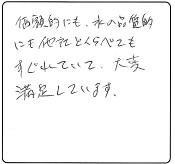 価額的にも、水の品質的
にも他社とくらべても
すぐれていて、大変
満足しています。